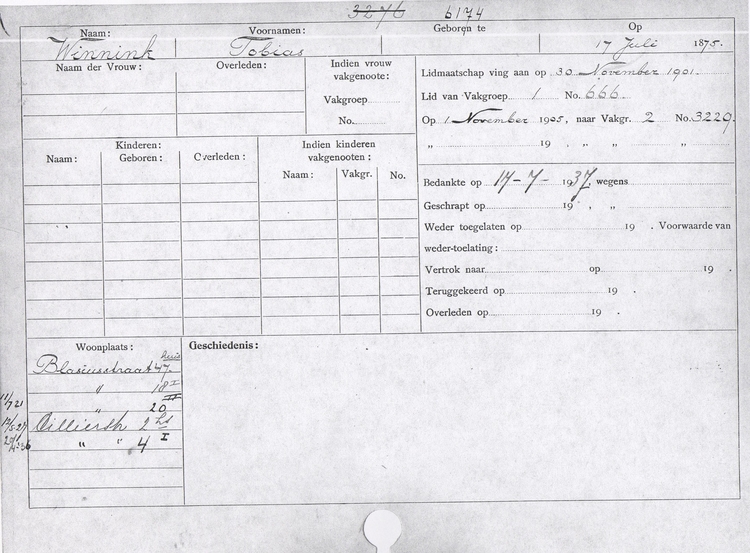 3276 6174
Naam: Voornamen: Geboren te Op
Winnink Tobias 17 Juli 1875.
Naam der Vrouw: Overleden: Indien vrouw vakgenoote:
Vakgroep
No.
Lidmaatschap ving aan op 30 November 1901.
Lid van Vakgroep 1 No. 666
Op 1 November 1905, naar Vakgr. 2 No. 3229
„ 19 , „ „ „
Kinderen: Indien kinderen vakgenooten:
Naam: Geboren: Overleden: Naam: Vakgr. No.
Bedankte op 17-7- 1937, wegens
Geschrapt op 19 , „
Weder toegelaten op 19 . Voorwaarde van
weder-toelating:
Vertrok naar op 19 .
Teruggekeerd op 19 .
Overleden op 19 .
Woonplaats: Geschiedenis:
huis
Blasiusstraat 47.
„ 18 I
11/7 21 „ 20 II
Cilliersstr 2 hs
„ „ 4 I